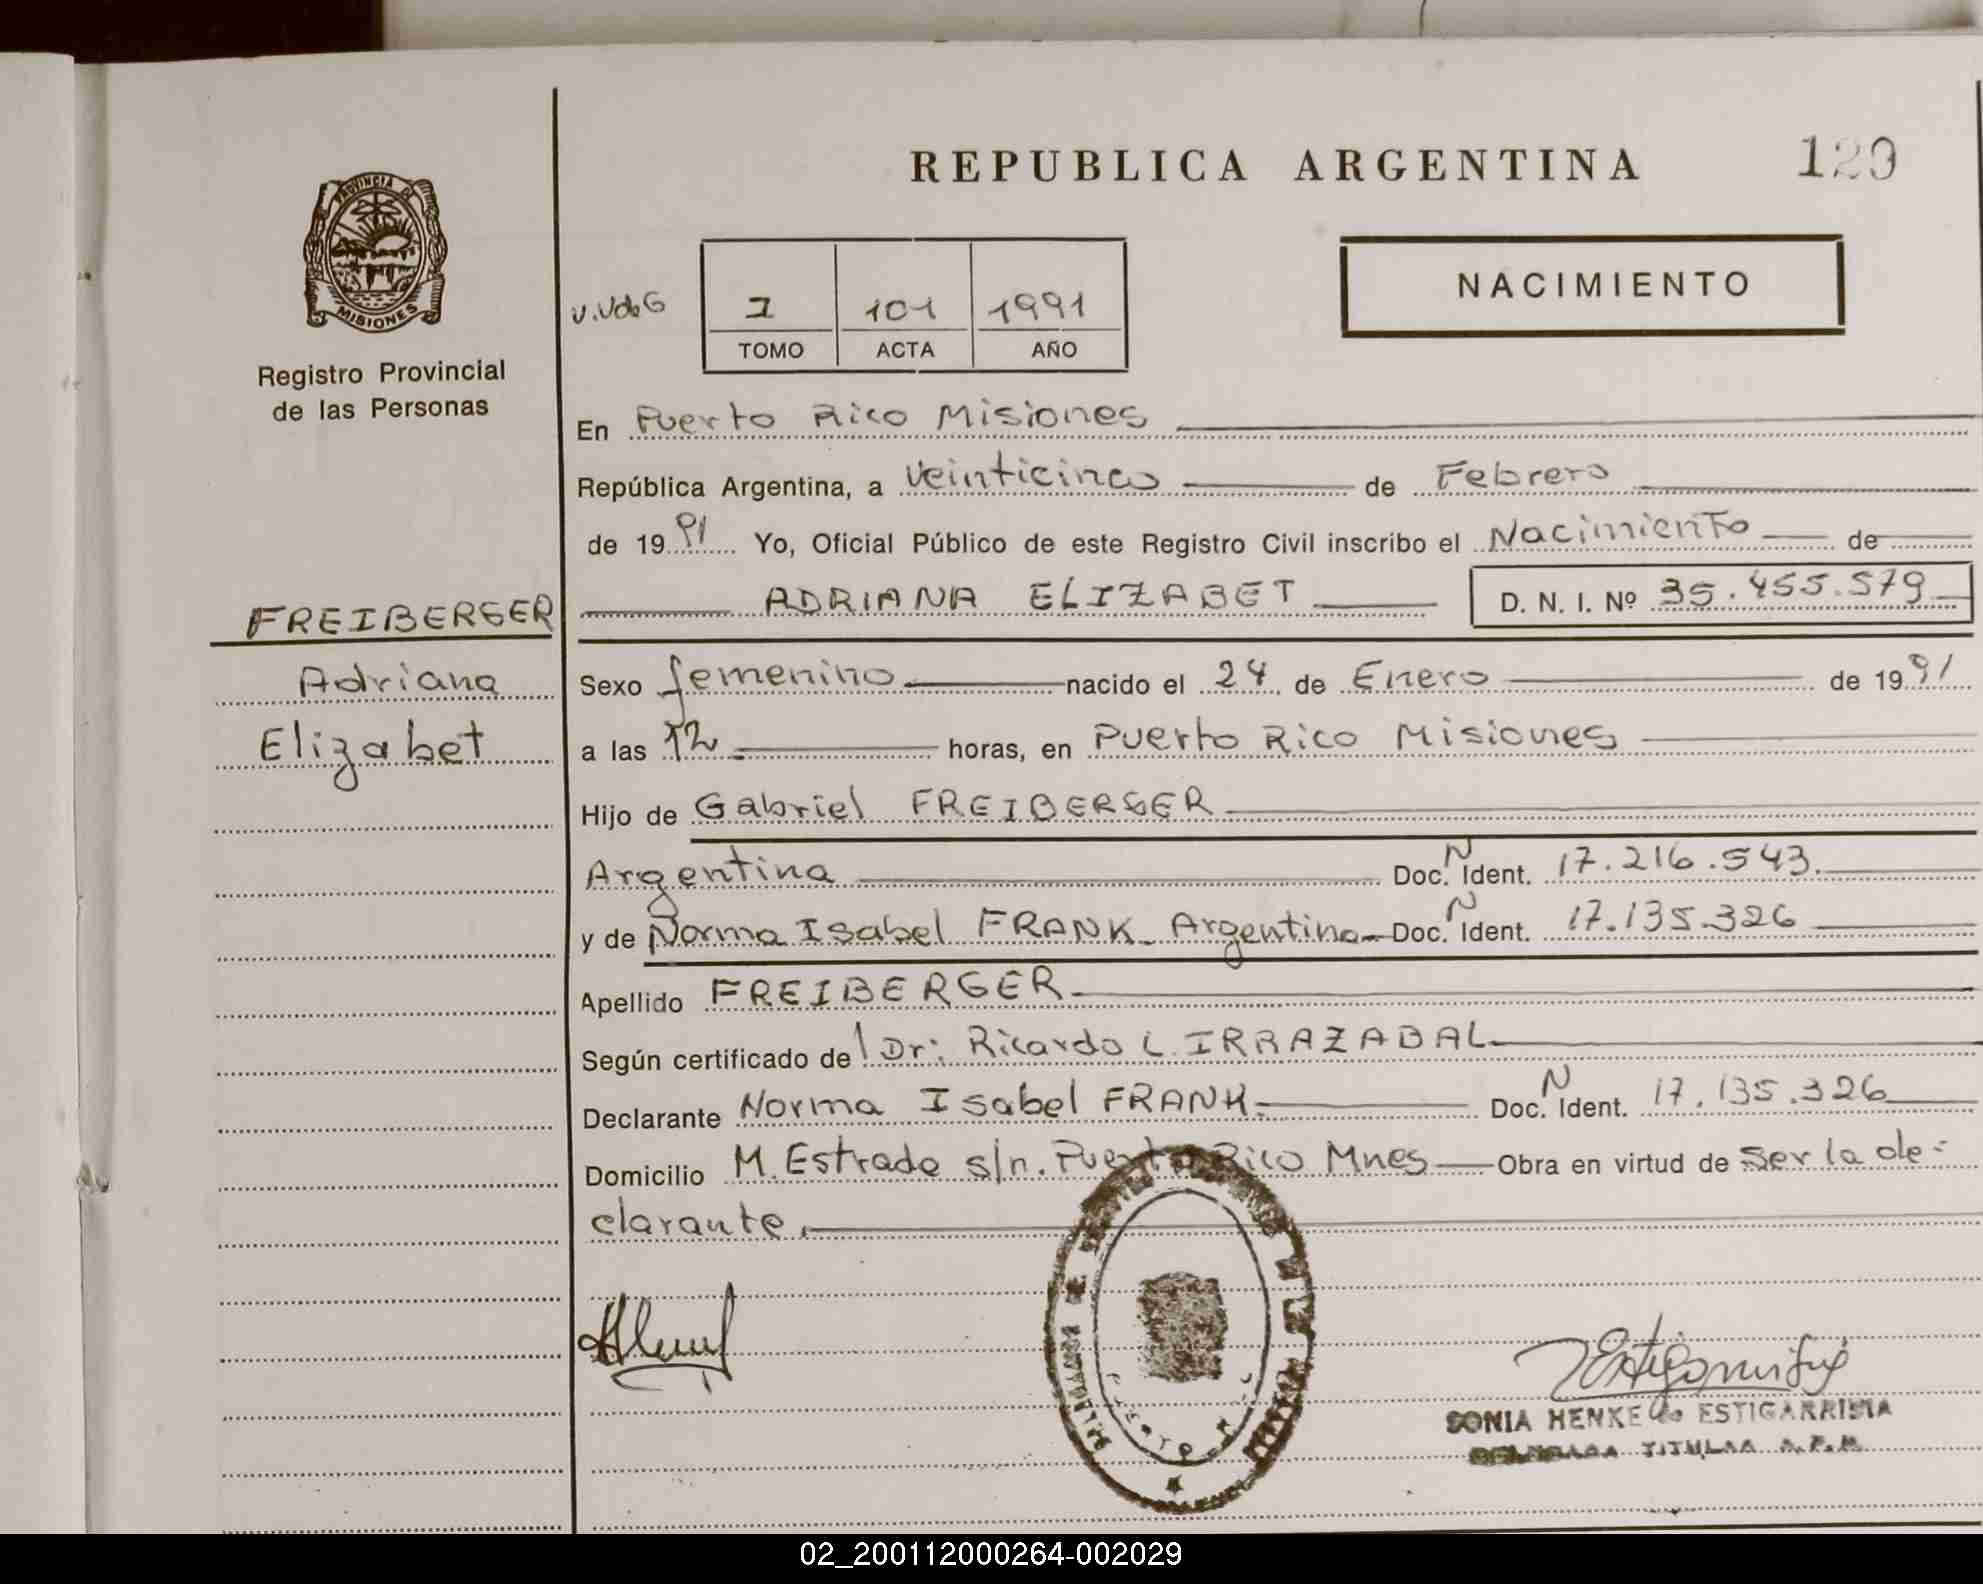 REPUBLICA ARGENTINA
PROVINCIA DE
MISIONES
Registro Provincial
de las Personas
NACIMIENTO
V.VdeG
I 101 1991
TOMO ACTA AÑO
En Puerto Rico Misiones
República Argentina, a Veinticinco de Febrero
de 1991 Yo, Oficial Público de este Registro Civil inscribo el Nacimiento de
FREIBERGER
ADRIANA ELIZABET D. N. I. Nº 35.455.579
Adriana
Elizabet
Sexo femenino nacido el 24 de Enero de 1991
a las 12 horas, en Puerto Rico Misiones
Hijo de Gabriel FREIBERGER
Argentina Doc. N Ident. 17.216.543.
y de Norma Isabel FRANK Argentina Doc. N Ident. 17.135.326
Apellido FREIBERGER
Según certificado de Dr: Ricardo L. IRRAZABAL
Declarante Norma Isabel FRANK. Doc. N Ident. 17.135.326
Domicilio M. Estrada s/n. Puerto Rico Mnes Obra en virtud de Ser la de-
clarante.
SONIA HENKE de ESTIGARRIBIA
TITULAR
02_200112000264-002029